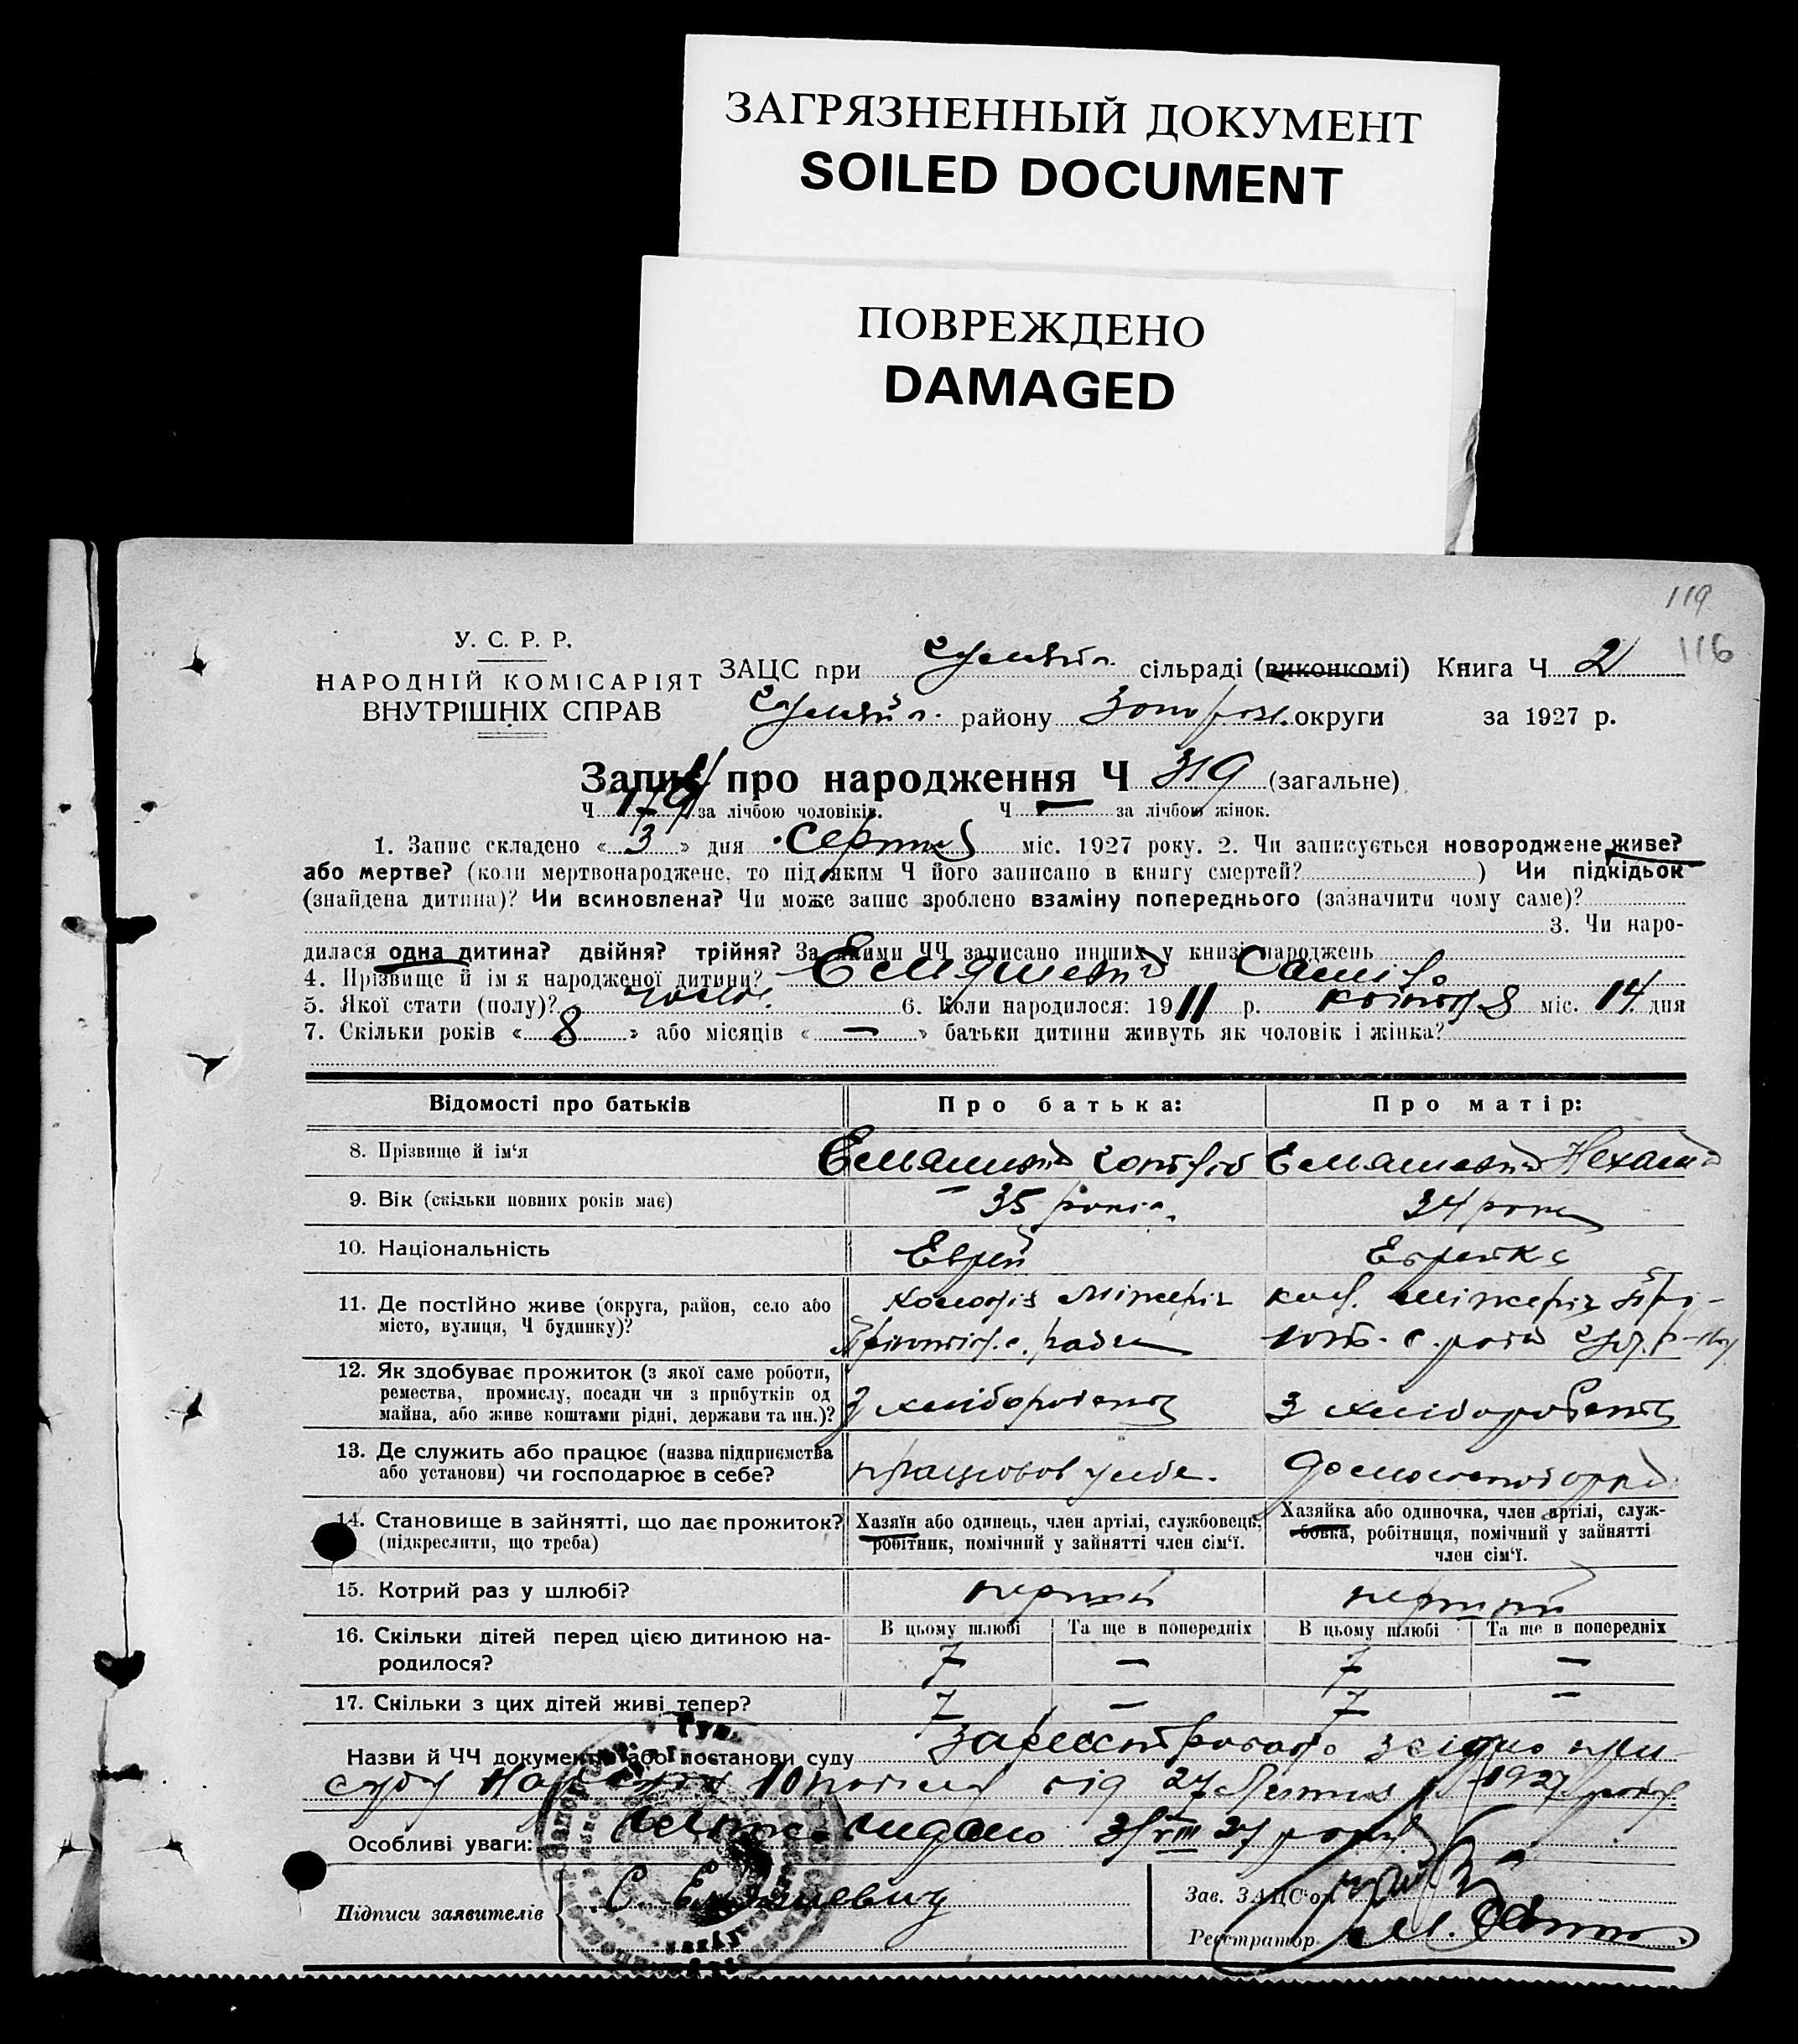 ЗАГРЯЗНЕННЫЙ ДОКУМЕНТ
SOILED DOCUMENT
ПОВРЕЖДЕНО
DAMAGED
119
116
У. С. Р. Р.
НАРОДНІЙ КОМІСАРІЯТ
ВНУТРІШНІХ СПРАВ
ЗАЦС при сільраді (виконкомі) Книга Ч 2
району Запоріз. округи за 1927 р.
Запис про народження Ч 319 (загальне)
Ч 179 за лічбою чоловіків. Ч — за лічбою жінок.
1. Запис складено « 3 » дня Серпня міс. 1927 року. 2. Чи записується новороджене живе?
або мертве? (коли мертвонароджене, то під яким Ч його записано в книгу смертей? ) Чи підкідьок
(знайдена дитина)? Чи всиновлена? Чи може запис зроблено взаміну попереднього (зазначити чому саме)?
3. Чи наро-
дилася одна дитина? двійня? трійня? За якими ЧЧ записано инших у книзі народжень
4. Прізвище й ім'я народженої дитини?
5. Якої стати (полу)? чолов. 6. Коли народилося: 1911 р. квітня 8 міс. 14 дня
7. Скільки років « 8 » або місяців « — » батьки дитини живуть як чоловік і жінка?
Відомості про батьків
Про батька:
Про матір:
8. Прізвище й ім'я
9. Вік (скільки повних років має) 35 років 34 роки
10. Національність Еврей Еврейка
11. Де постійно живе (округа, район, село або
місто, вулиця, Ч будинку)?
12. Як здобуває прожиток (з якої саме роботи,
ремества, промислу, посади чи з прибутків од
майна, або живе коштами рідні, держави та ин.)?
З хліборобства З хліборобства
13. Де служить або працює (назва підприємства
або установи) чи господарює в себе?
14. Становище в зайнятті, що дає прожиток?
(підкреслити, що треба)
Хазяїн або одинець, член артілі, службовець,
робітник, помічний у зайнятті член сім'ї.
Хазяйка або одиночка, член артілі, служ-
бовка, робітниця, помічний у зайнятті
член сім'ї.
15. Котрий раз у шлюбі? перший перший
16. Скільки дітей перед цією дитиною на-
родилося?
В цьому шлюбі Та ще в попередніх В цьому шлюбі Та ще в попередніх
7 — 7 —
17. Скільки з цих дітей живі тепер? 7 — 7 —
Назви й ЧЧ документів або постанови суду Зареєстровано згідно при-
суду від 27 Липня 1927 року
Особливі уваги: видано 3/VIII 27 року
Підписи заявителів С. Ельяшевич
Зав. ЗАЦС'ом
Реєстратор